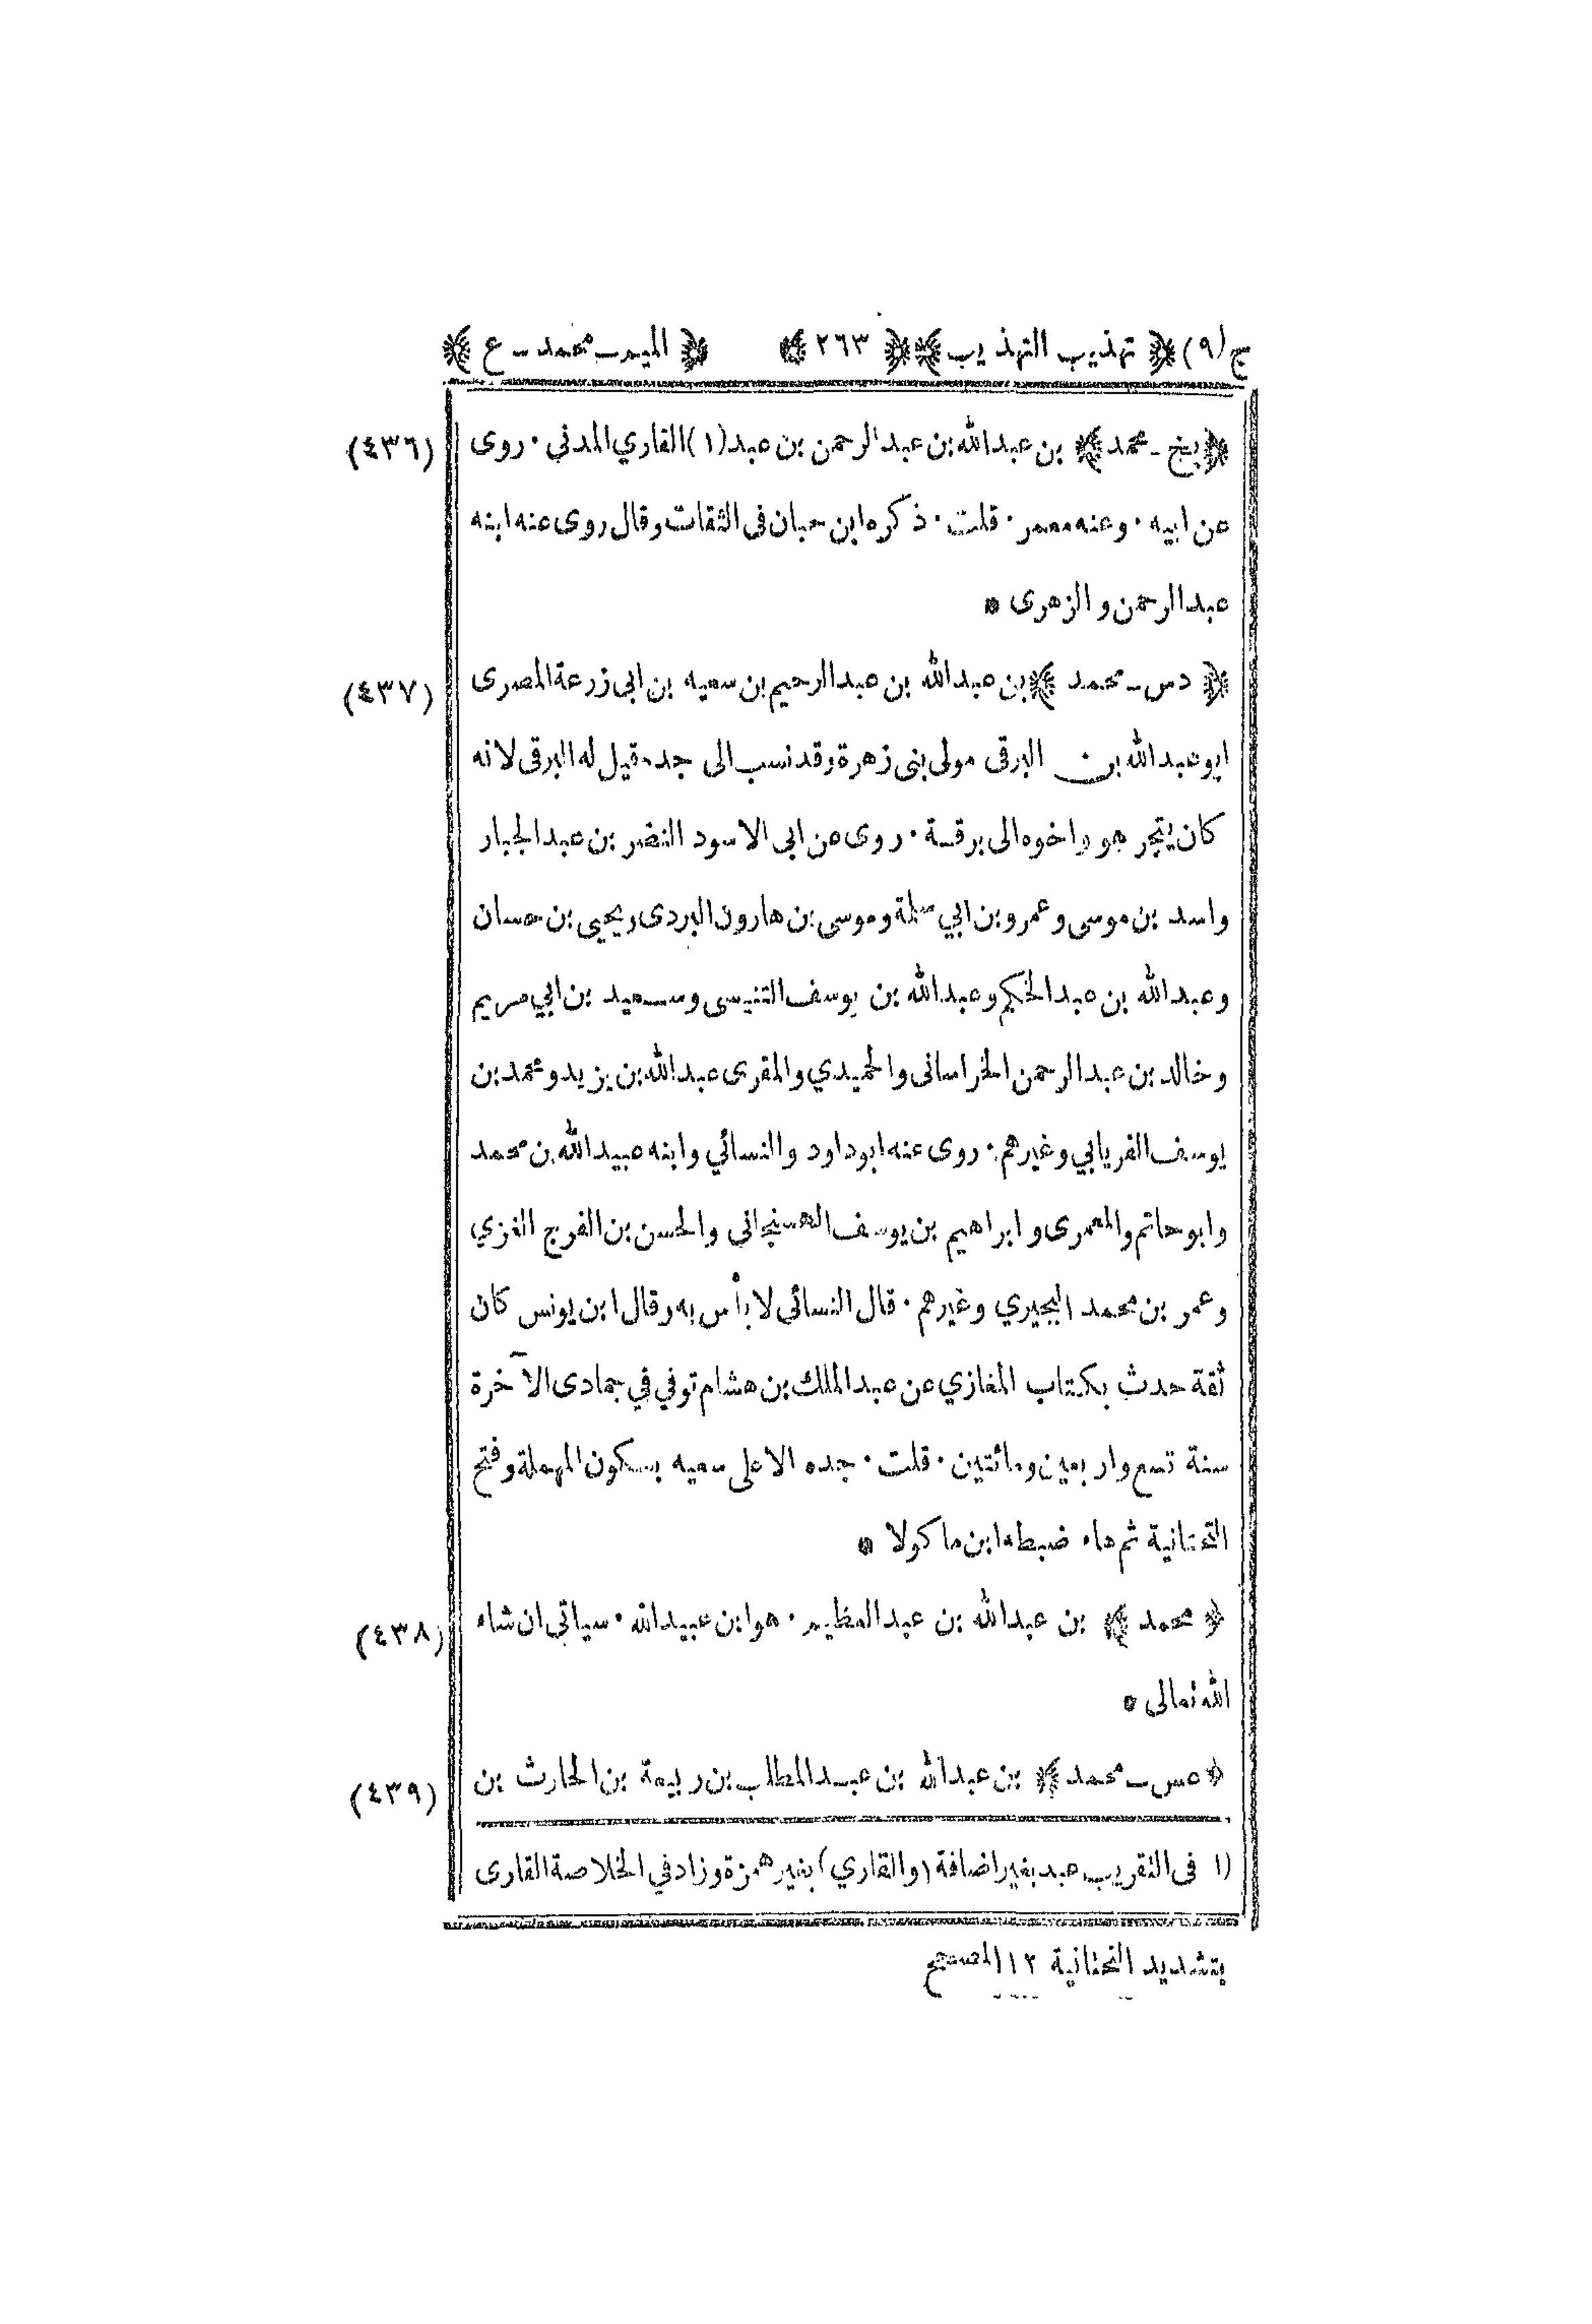 ج (٩) ﴿ تهذيب التهذيب ﴾ ﴿ ٢٦٣ ﴾ ﴿ الميم ـ محمد ـ ع ﴾
﴿ بخ ـ محمد ﴾ بن عبدالله بن عبدالرحمن بن عبد (١) القاري المدني · روى (٤٣٦)
عن ابيه · وعنه معمر · قلت · ذكره ابن حبان فى الثقات وقال روى عنه ابنه
عبدالرحمن والزهرى *
﴿ دس ـ محمد ﴾ بن عبدالله بن عبدالرحيم بن سعيه بن ابى زرعة المصرى (٤٣٧)
ابو عبدالله بن البرقى مولى بنى زهرة وقد نسب الى جده قيل له البرقى لانه
كان يتجر هو واخوه الى برقة · روى عن ابى الاسود النضر بن عبدالجبار
واسد بن موسى وعمرو بن ابي سلمة وموسى بن هارون البردى ويحيى بن حسان
وعبدالله بن عبدالحكم وعبدالله بن يوسف التنيسى وسعيد بن ابي مريم
وخالد بن عبدالرحمن الخراسانى والحميدي والمقرى عبدالله بن يزيد ومحمد بن
يوسف الفريابي وغيرهم · روى عنه ابوداود والنسائي وابنه عبيدالله بن محمد
وابو حاتم والمعمرى وابراهيم بن يوسف الهسنجانى والحسن بن الفرج الغزي
وعمر بن محمد البجيري وغيرهم · قال النسائى لا بأس به وقال ابن يونس كان
ثقة حدث بكتاب المغازي عن عبدالملك بن هشام توفي في جمادى الآخرة
سنة تسع واربعين ومائتين · قلت · جده الاعلى سعيه بسكون المهملة وفتح
التحتانية ثم هاء ضبطه ابن ماكولا *
﴿ محمد ﴾ بن عبدالله بن عبدالعظيم · هو ابن عبيدالله · سياتي ان شاء (٤٣٨)
الله تعالى *
﴿ عس ـ محمد ﴾ بن عبدالله بن عبدالمطلب بن ربيعة بن الحارث بن (٤٣٩)
(١ فى التقريب عبد بغير اضافة (والقاري) بغير همزة وزاد في الخلاصة القارى
بتشديد التحتانية ١٢ المصحح